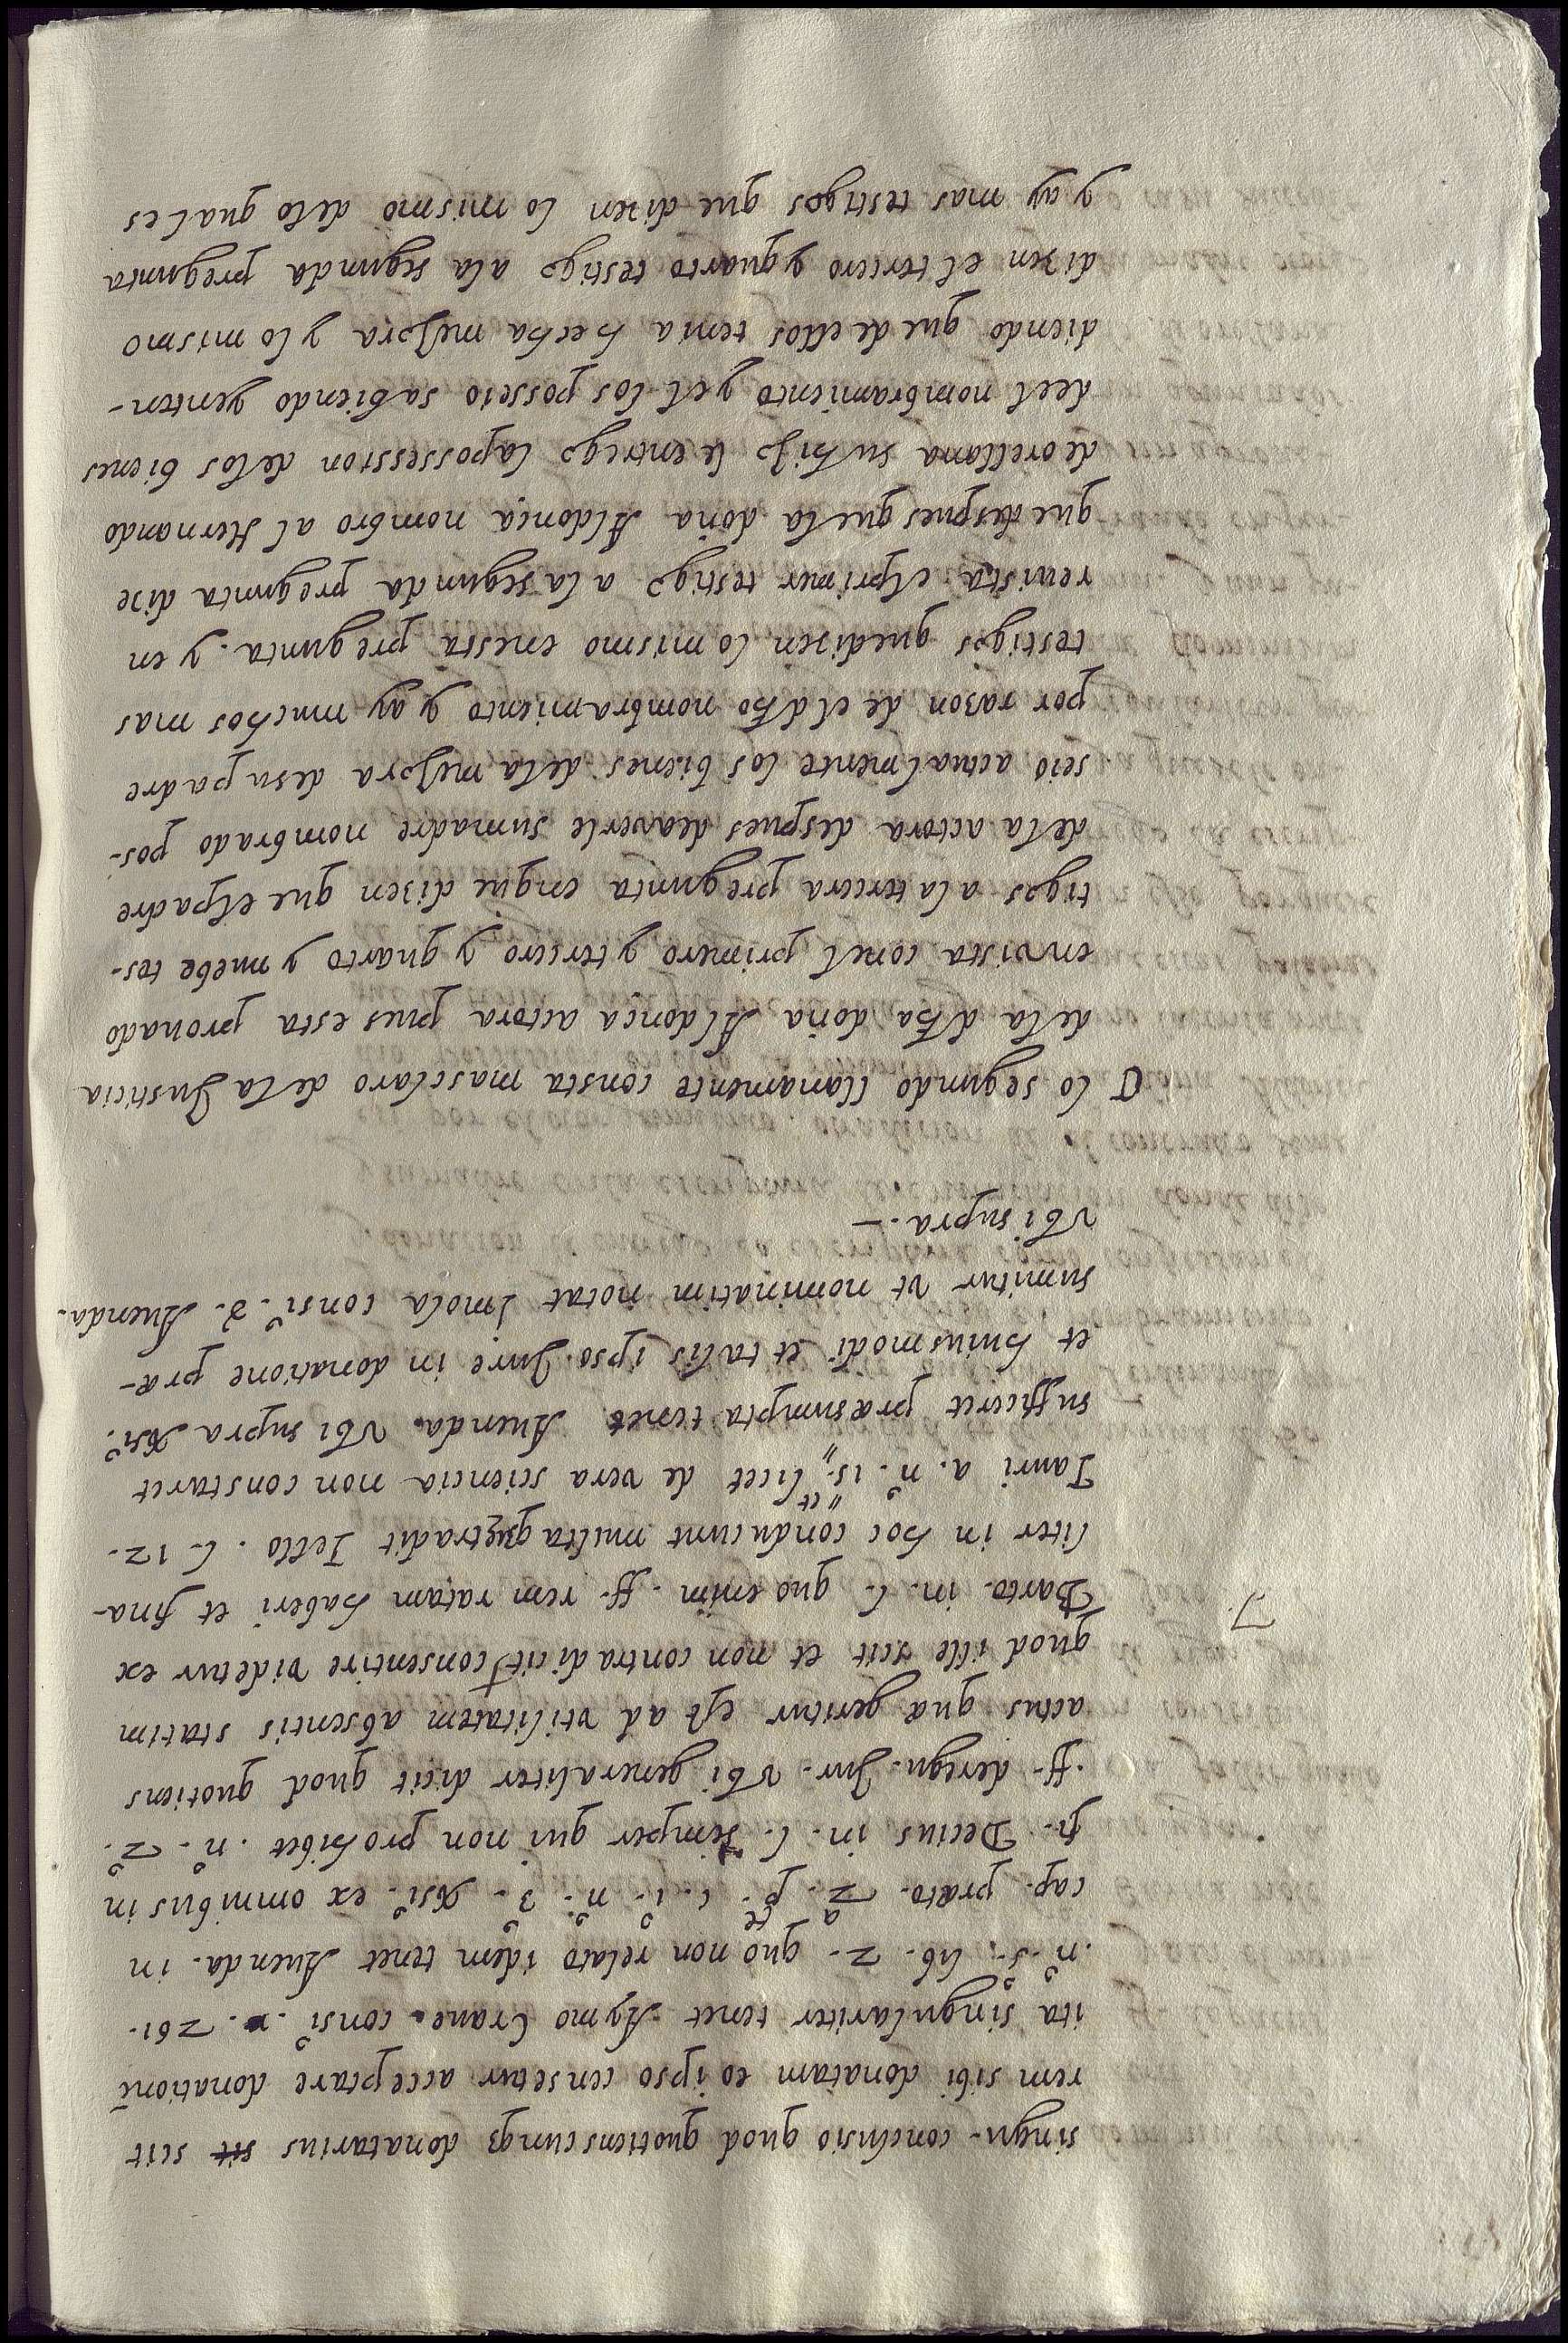 singu. conclusio quod quotienscunqȝ donatarius scit
rem sibi donatam eo ipso censetur acceptare donationē
ita singulariter tenet Aymo Crave. consi.º 261.
nº. 5. lib. 2. quo non relato idem tenet Auenda. in
cap. præto. 2.ª p.te c. i.º nº. 3. ex omnibus in
fi. Decius in. l. semper qui non prohibet. nº. 2.
ff. de regu. Jur. Vbi generaliter dicit quod quotiens
actus quæ geritur est ad vtilitatem absentis statim
quod ille scit et non contradicit consentire videtur ex
7. Barto. in. l. quo enim. ff. rem ratam haberi et fina-
liter in hoc conducunt multa quę tradit Tello. l. 17.
Tauri a. nº. 15. et licet de vera sciencia non constaret
sufficeret præsumpta tenet Auenda. Vbi supra
et huiusmodi et talis ipso Jure in donatione præ-
sumitur vt nominatim notat Imola consi.º 2. Auenda.
Vbi supra. —
lo segundo llanamente consta mas claro de la Justicia
de la dha doña Aldonça actora pues esta prouado
en vista con el primero y tersero y quarto y nuebe tes-
tigos a la tercera pregunta en que dizen que el padre
de la actora despues de averle su madre nombrado pos-
seio actualmente los bienes de la mejora de su padre
por razon de el dho nombramiento y ay muchos mas
testigos que dizen lo mismo en esta pregunta. y en
reuista el primer testigo a la segunda pregunta dize
que despues que la doña Aldonça nombro al Hernando
de orellana su hijo le entrego la possession de los bienes
de el nombramiento y el los posseio sabiendo y enten-
diendo que de ellos tenia hecha mejora y lo mismo
dizen el tercero y quarto testigo a la segunda pregunta
y ay mas testigos que dizen lo mismo de lo qual es